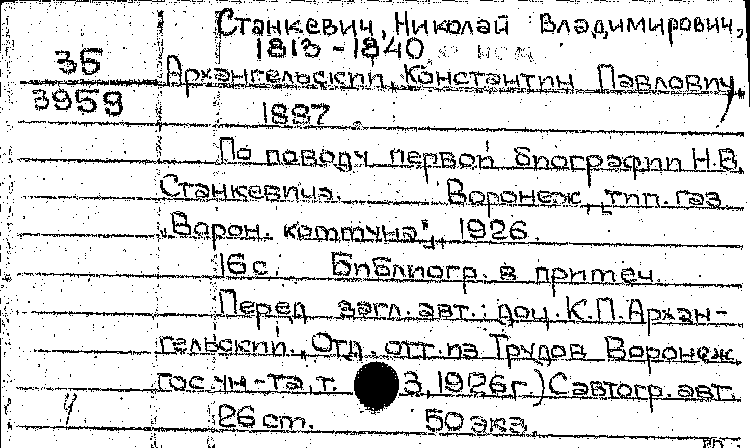 Станкевич, Николай Владимирович,
1813-1840 о нем
36
3959
Архангельский, Константин Павлович,
1887
По поводу первой биографии Н.В.
Станкевича. Воронеж, тип. газ.
„Ворон. коммуна", 1926.
16с. Библиогр. в примеч.
Перед загл. авт.: доц. К.П. Архан-
гельский., Отд. отт. из Трудов Воронеж.
гос. ун-та, т. 3, 1926г.) С автогр. авт.
26 ст. 50 экз.